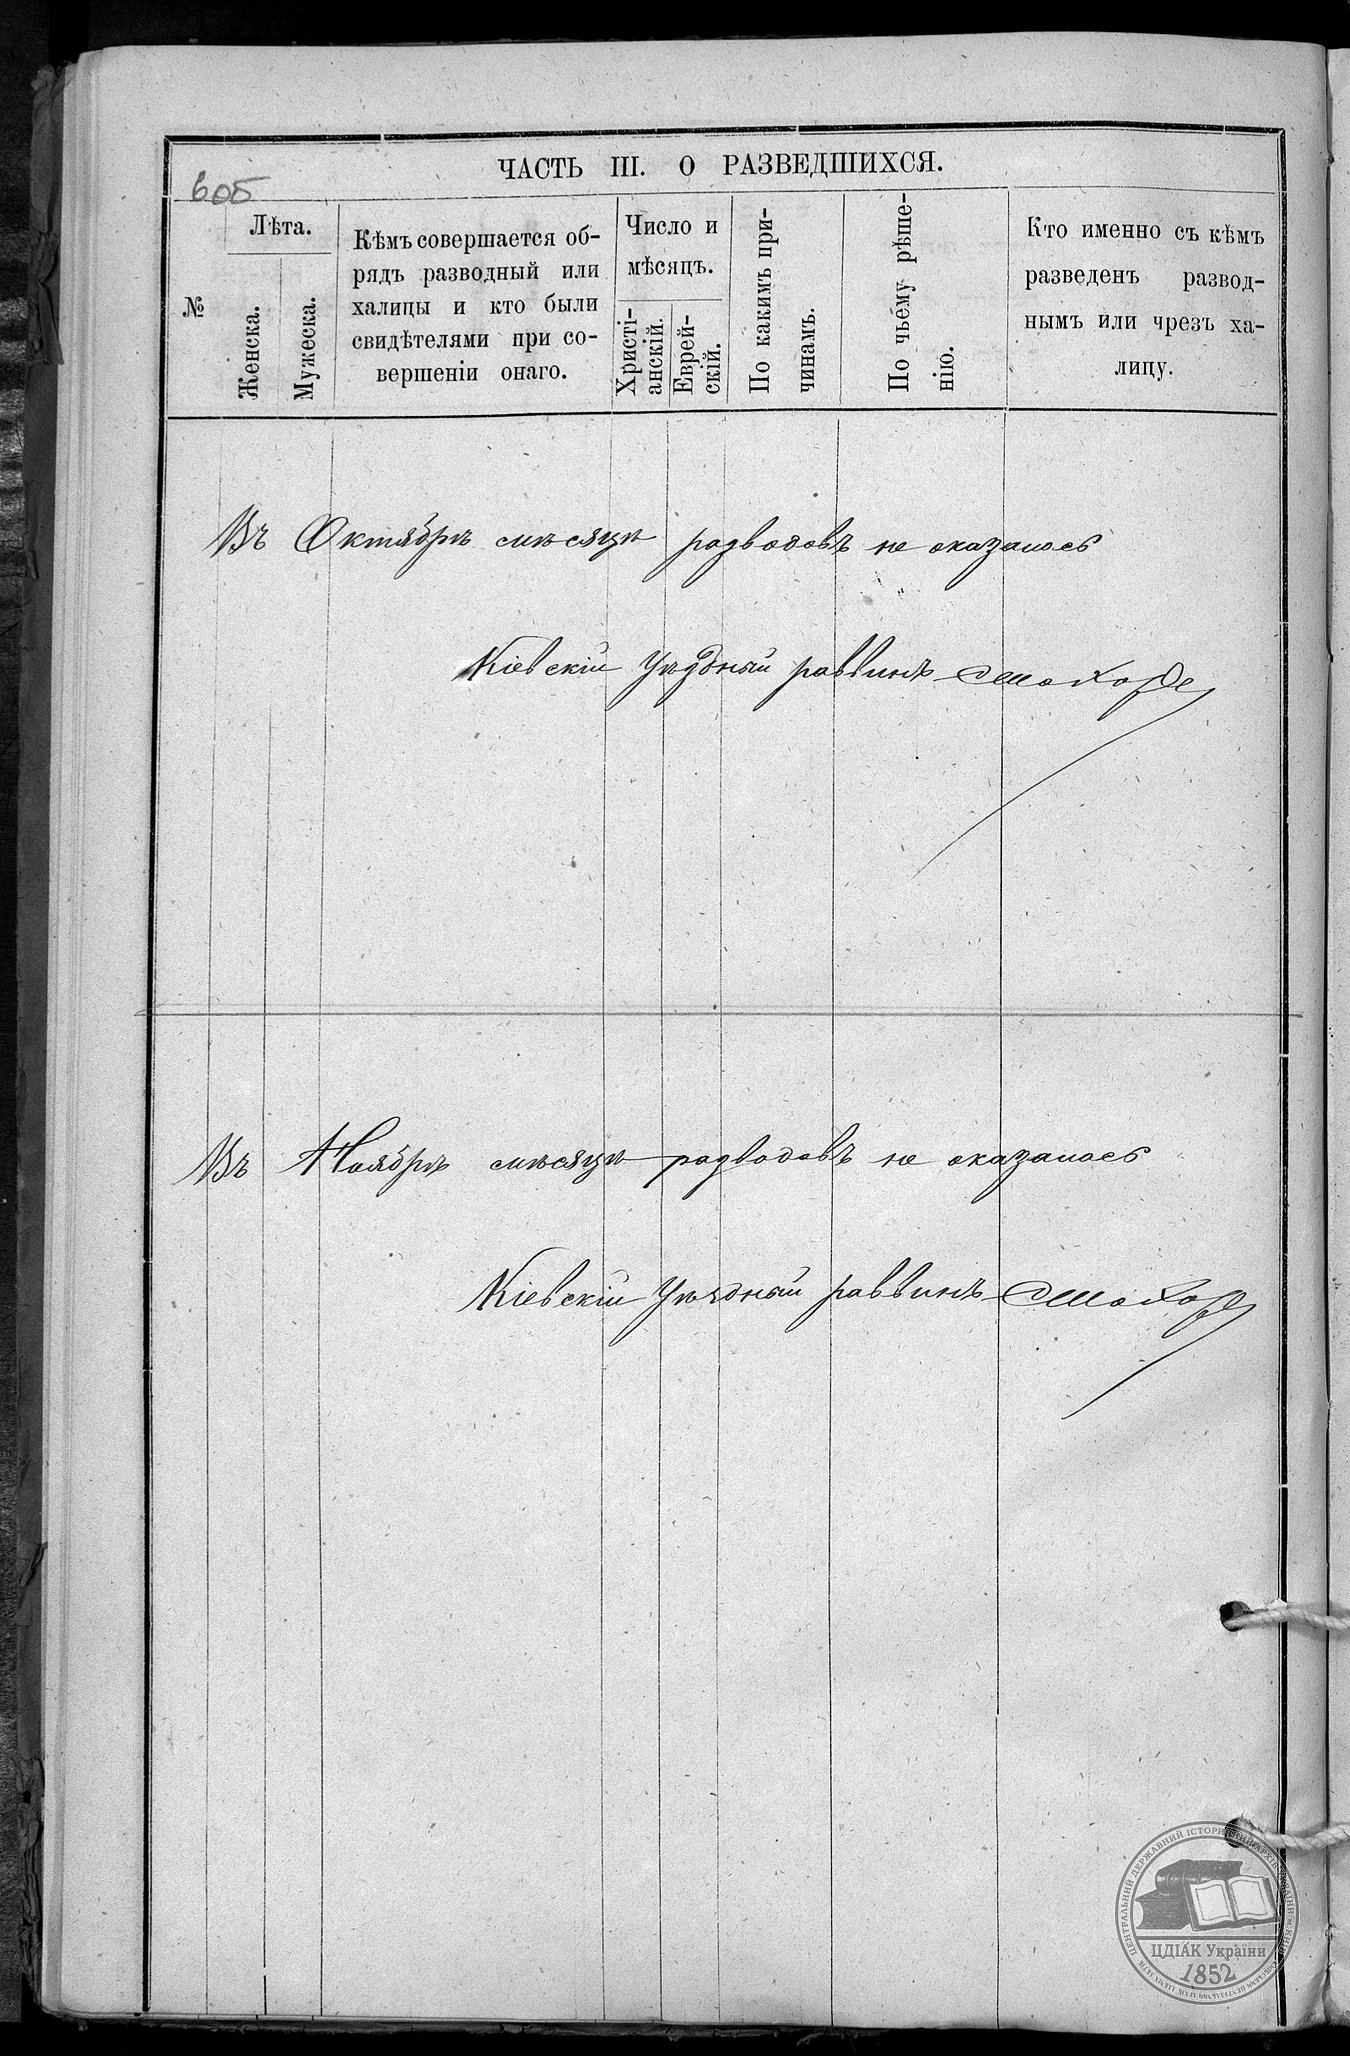 ЧАСТЬ III. О РАЗВЕДШИХСЯ.
606
№
Лѣта.
Женска.
Мужеска.
Кѣмъ совершается об-
рядъ разводный или
халицы и кто были
свидѣтелями при со-
вершеніи онаго.
Число и
мѣсяцъ.
Христі-
анскій.
Еврей-
скій.
По какимъ при-
чинамъ.
По чьему рѣше-
нію.
Кто именно съ кѣмъ
разведенъ развод-
нымъ или чрезъ ха-
лицу.
Въ Октябрѣ мѣсяцѣ разводовъ не оказалось
Кіевскій Уѣздный раввинъ
Въ Ноябрѣ мѣсяцѣ разводовъ не оказалось
Кіевскій Уѣздный раввинъ
ЦДІАК України
1852